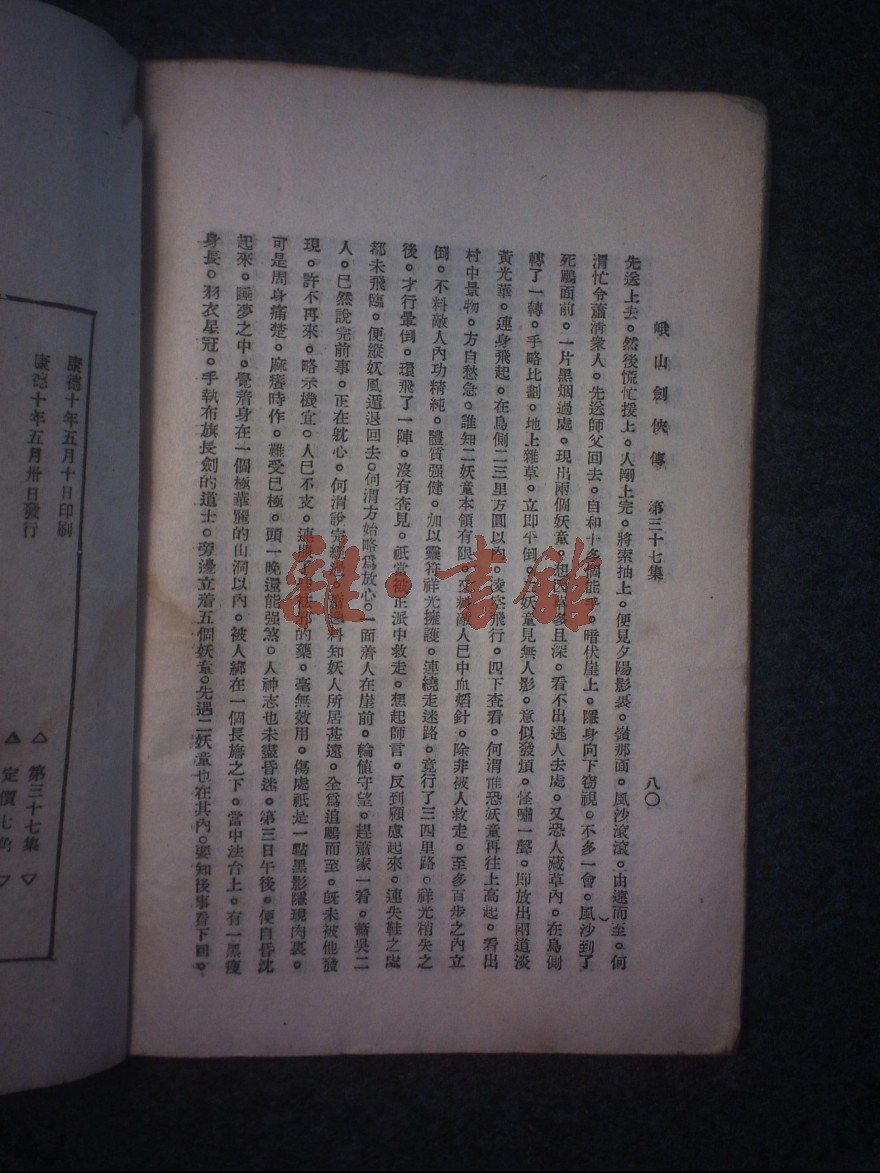 峨山劍俠傳　第三十七集
八〇
先送上去。然後慌忙援上。人剛上完。將索抽上。便見夕陽影裏。嶺那面。風沙滾滾。由遠而至。何
渭忙令蕭清衆人。先送師父回去。自和十多個能手。暗伏崖上。隱身向下窃視。不多一會。風沙到了
死鵰面前。一片黑烟過處。現出兩個妖童。想民草多且深。看不出逃人去處。又恐人藏草內。在鳥側
轉了一轉。手略比劃。地上雜草。立即平倒。妖童見無人影。意似發煩。怪嘯一聲。即放出兩道淡
黃光華。連身飛起。在鳥側二三里方圓以內。凌空飛行。四下查看。何渭惟恐妖童再往上高起。看出
村中景物。方自愁急。誰知二妖童本領有限。又料敵人已中血焰針。除非被人救走。至多百步之內立
倒。不料敵人內功精純。體質强健。加以靈符祥光擁護。連繞走迷路。竟行了三四里路。祥光稍失之
後。才行暈倒。環飛了一陣。沒有查見。祇當被正派中救走。想起師言。反到顧慮起來。連失鞋之處
都未飛臨。便縱妖風遁退回去。何渭方始略爲放心。一面着人在崖前。輪値守望。趕蕭家一看。蕭吳二
人。已然說完前事。正在躭心。何渭說完經過。蕭逸料知妖人所居甚遠。全爲追鵰而至。旣未被他發
現。許不再來。略示機宜。人已不支。連服了些祛邪的藥。毫無效用。傷處祇是一點黑影隱現肉裏。
可是周身痛楚。麻癢時作。難受已極。頭一晚還能强煞。人神志也未盡昏迷。第三日午後。便自昏沈
起來。睡夢之中。覺着身在一個極華麗的山洞以內。被人綁在一個長旛之下。當中法台上。有一黑瘦
身長。羽衣星冠。手執布旗長劍的道士。旁邊立着五個妖童。先遇二妖童也在其內。要知後事看下回。
雜·書館
康德十年五月十日印刷
康德十年五月卅日發行
△ 第三十七集 ▽
△ 定價七角 ▽